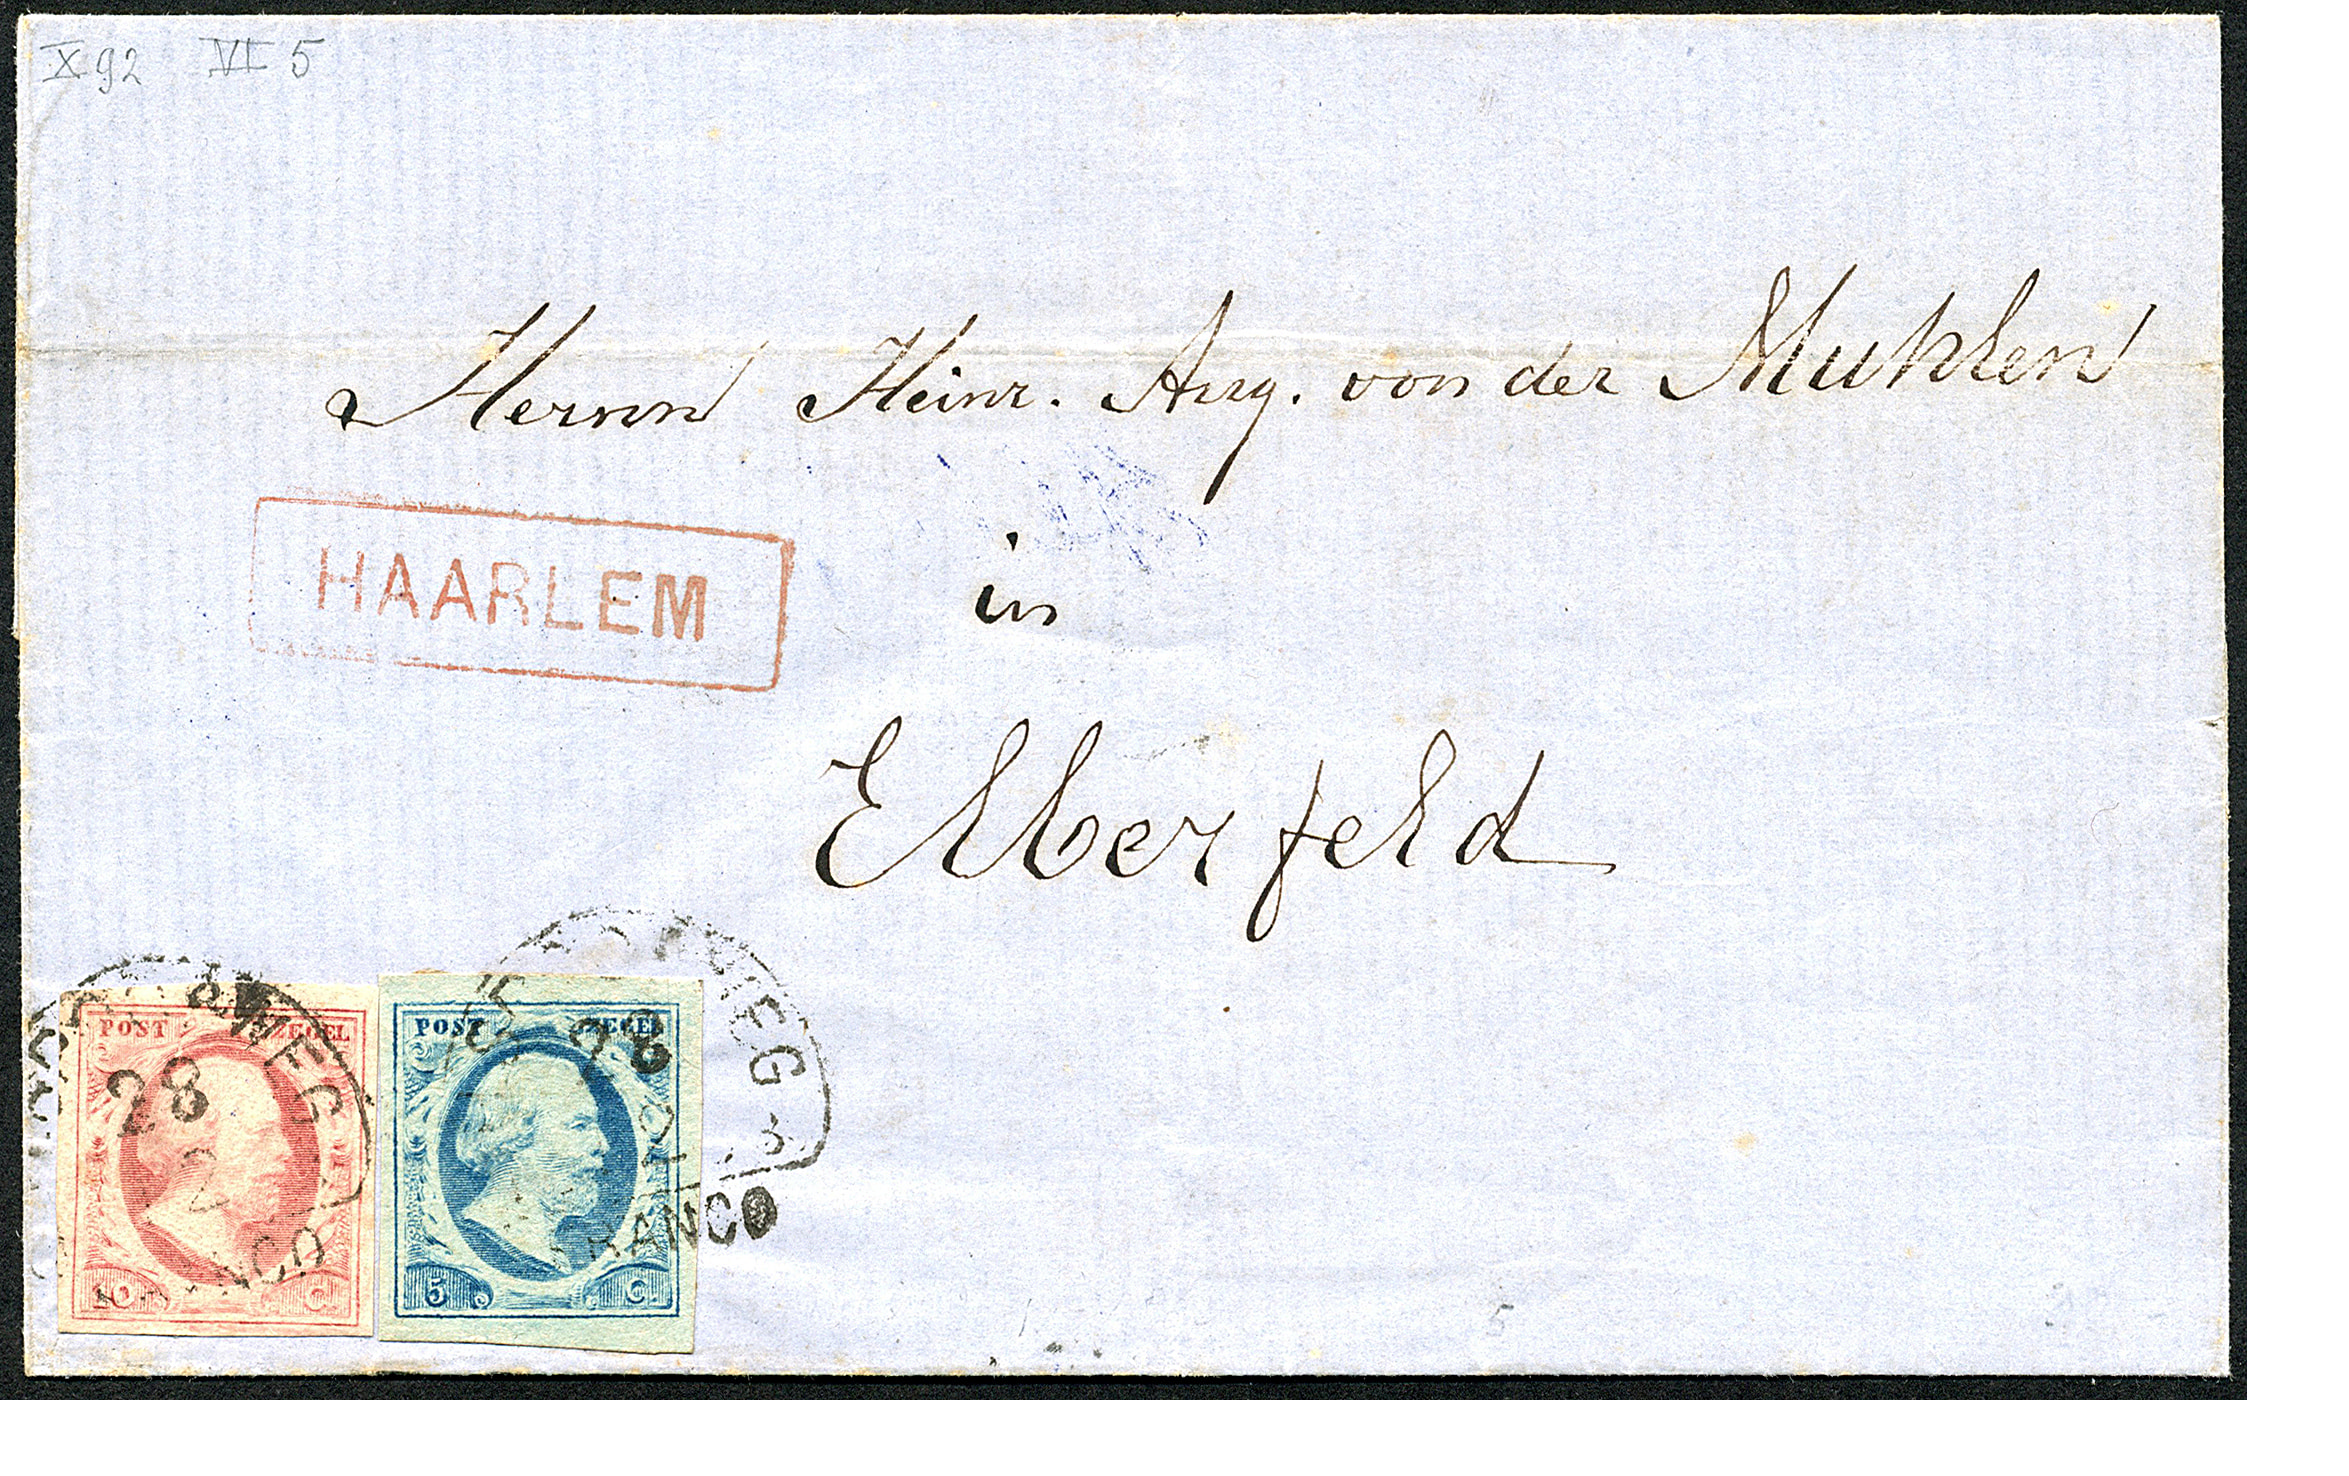 X 92 VI 5
Herrn Heinr. Aug. von der Muhlen
HAARLEM
in
Elberfeld
POST ZEGEL
28
2
FRANCO
10 C.
POST ZEGEL
28
2
FRANCO
5 C.
5